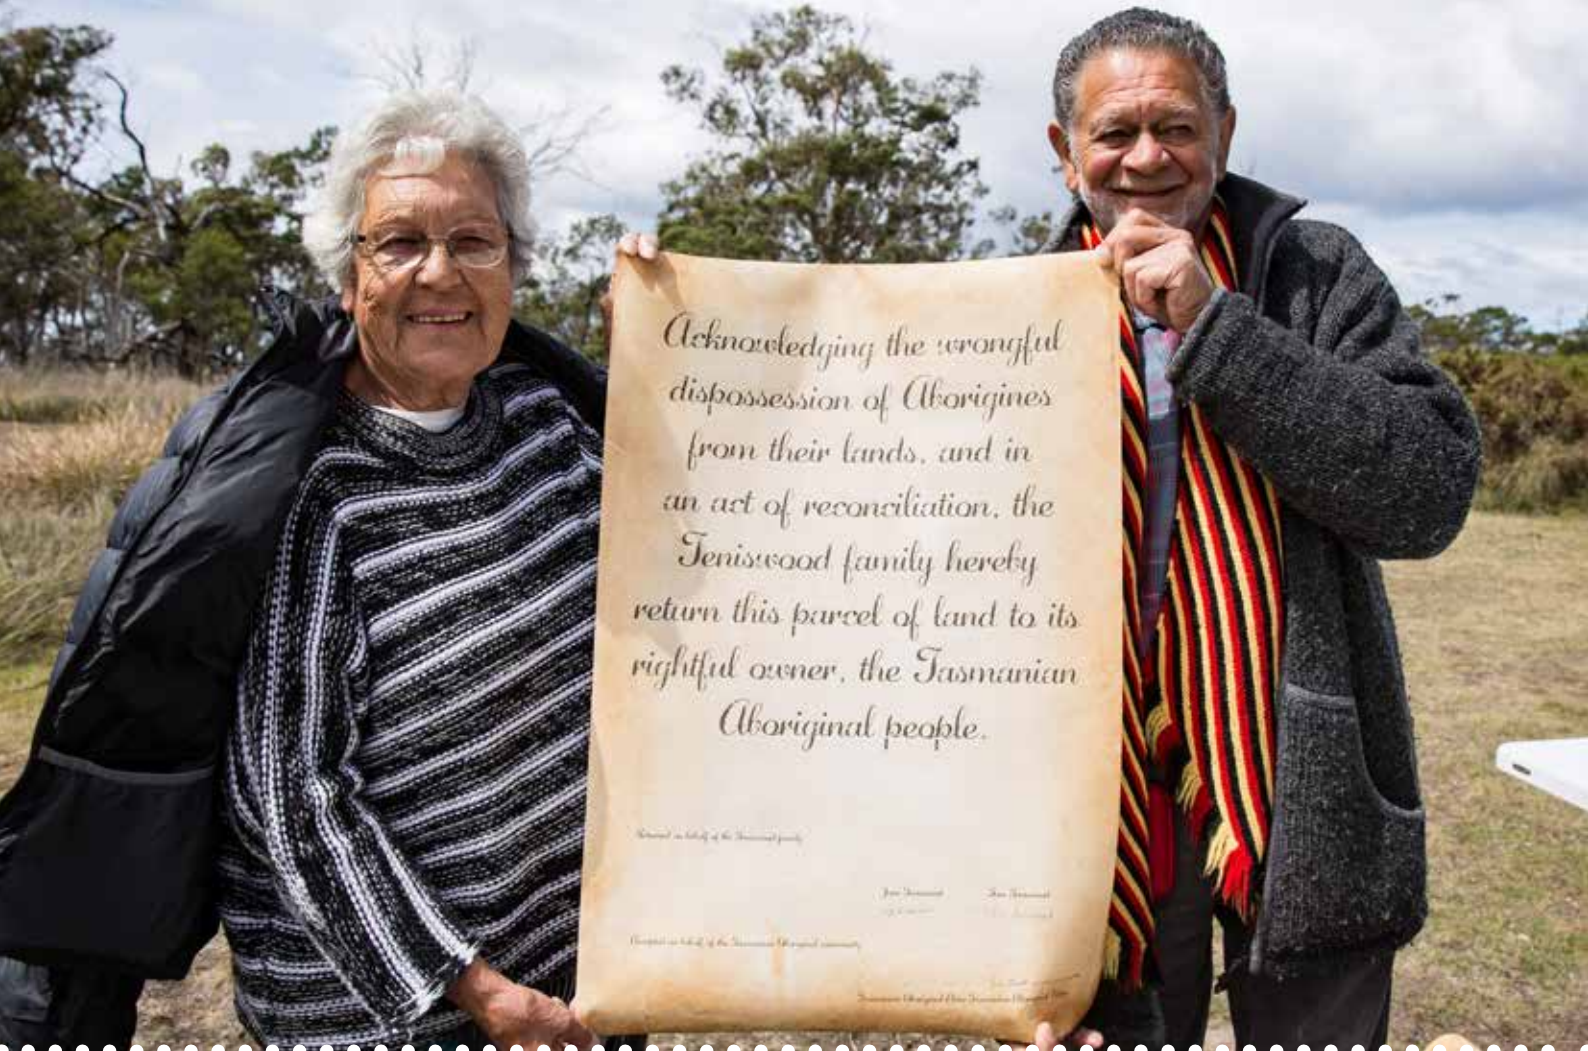 Acknowledging the wrongful
dispossession of Aborigines
from their lands, and in
an act of reconciliation, the
Teniswood family hereby
return this parcel of land to its
rightful owner, the Tasmanian
Aboriginal people.
on behalf of the Teniswood family
Teniswood Teniswood
Accepted on behalf of the Tasmanian Aboriginal community
Tasmanian Aboriginal